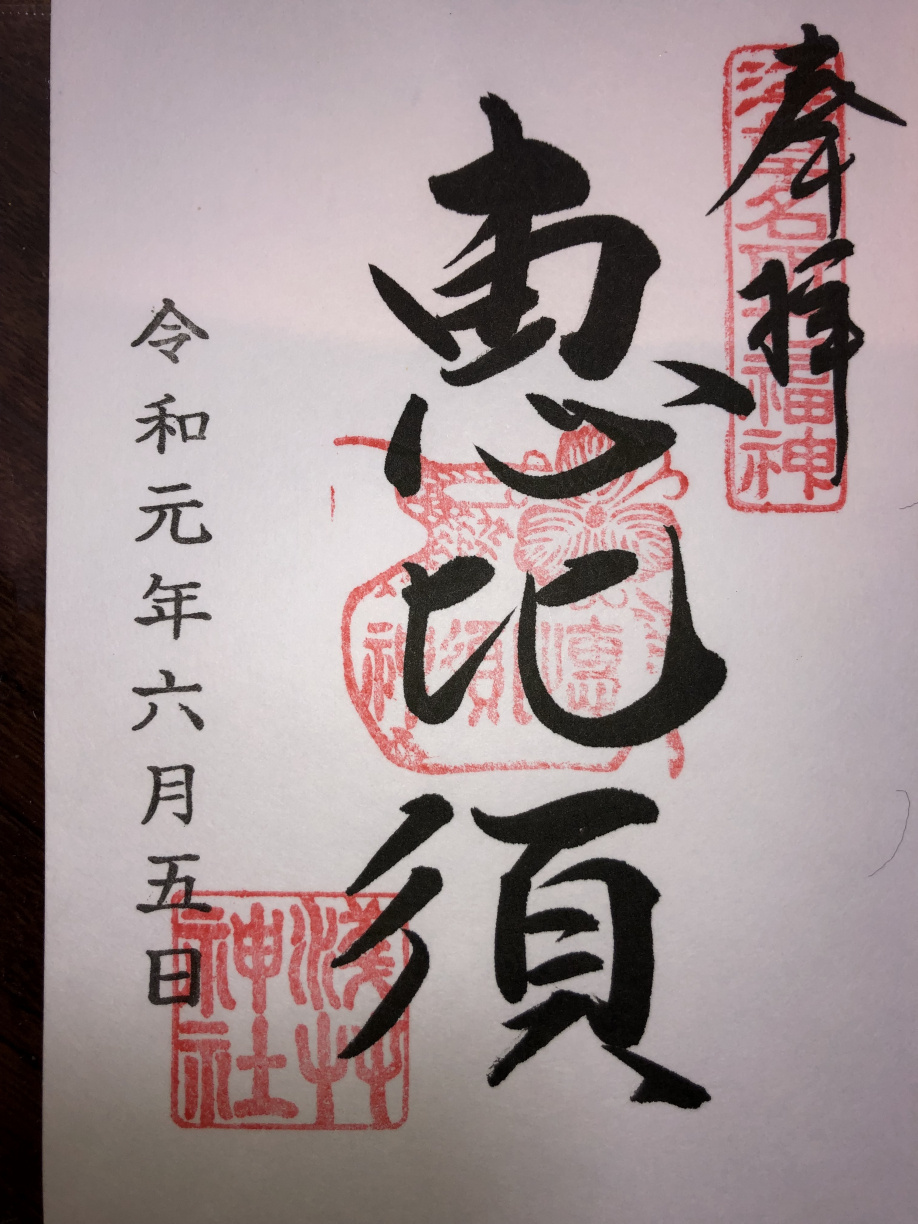 奉拝
浅草名所七福神
恵比須
恵比須神
令和元年六月五日
浅草神社